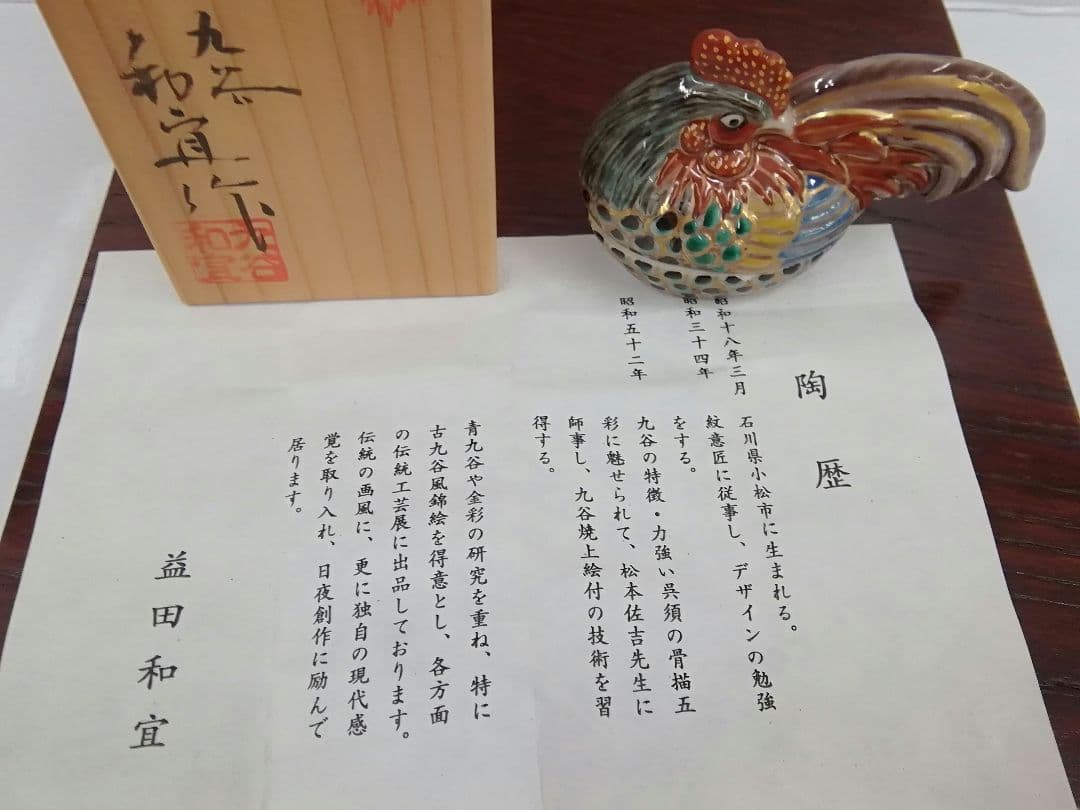 九谷
和宜作
九谷
和宜
陶歴
昭和十八年三月
石川県小松市に生まれる。
昭和三十四年
紋意匠に従事し、デザインの勉強
をする。
昭和五十二年
九谷の特徴・力強い呉須の骨描五
彩に魅せられて、松本佐吉先生に
師事し、九谷焼上絵付の技術を習
得する。
青九谷や金彩の研究を重ね、特に
古九谷風錦絵を得意とし、各方面
の伝統工芸展に出品しております。
伝統の画風に、更に独自の現代感
覚を取り入れ、日夜創作に励んで
居ります。
益田和宜